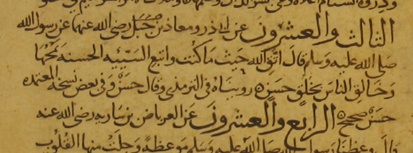 الثالث والعشرون عن ابي ذر ومعاذ بن جبل رضي الله عنهما عن رسول الله
صلى الله عليه وسلم قال اتق الله حيث ما كنت واتبع السيئة الحسنة تمحها
وخالق الناس بخلق حسن رويناه في الترمذي وقال حسن وفي بعض نسخه المعتمدة
حسن صحيح الرابع والعشرون عن العرباض بن سارية رضي الله عنه
قال وعظنا رسول الله صلى الله عليه وسلم موعظة وجلت منها القلوب